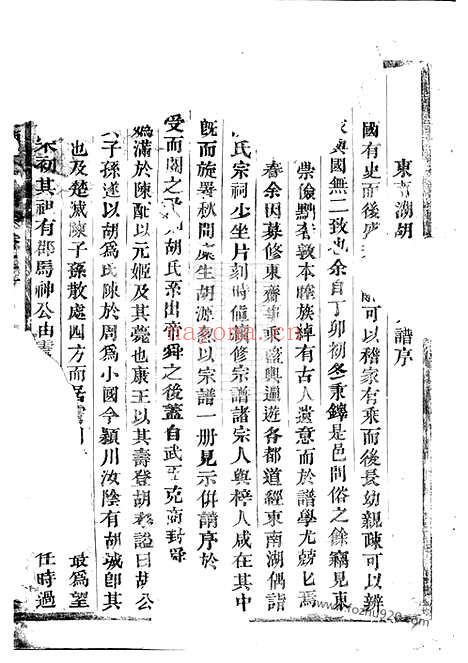 東 湖胡 譜序
國有史而後 可以稽家有乘而後長幼親疎可以辨
與國無二致也余自丁卯初冬秉鐸是邑問俗之餘竊見東
崇儉黜奢敦本睦族綽有古人遺意而於譜學尤兢兢焉
春余因募修東齋事 暨輿遍遊各都道經東南湖偶詣
氏宗祠少坐片刻時值新修宗譜諸宗人與梓人咸在其中
既而旋署秋間 生胡源 以宗譜一册見示併請序於
受而閱之 胡氏系出帝舜之後蓋自武王克商封舜
媯滿於陳配以元姬及其薨也康王以其壽登胡耉諡曰胡公
子孫遂以胡為氏陳於周為小國今潁川汝陰有胡城卽其
也及楚滅陳子孫散處四方而居 最為望
初其祖有郡馬神公由 任時過
yagona.com
www.fozhu920.com